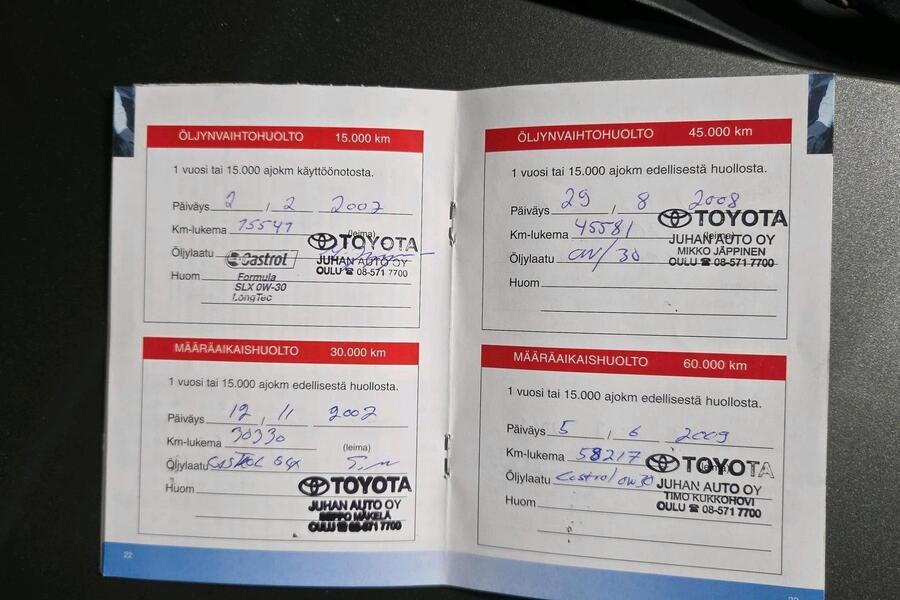 ÖLJYNVAIHTOHUOLTO 15.000 km
1 vuosi tai 15.000 ajokm käyttöönotosta.
Päiväys 2 / 2 2007
Km-lukema 15541 (leima)
TOYOTA
Öljylaatu Castrol
JUHAN AUTO OY
OULU ☎ 08-571 7700
Huom Formula
SLX 0W-30
LongTec
MÄÄRÄAIKAISHUOLTO 30.000 km
1 vuosi tai 15.000 ajokm edellisestä huollosta.
Päiväys 12 / 11 2007
Km-lukema 30330 (leima)
Öljylaatu CASTROL
Huom
TOYOTA
JUHAN AUTO OY
SEPPO MÄKELÄ
OULU ☎ 08-571 7700
22
ÖLJYNVAIHTOHUOLTO 45.000 km
1 vuosi tai 15.000 ajokm edellisestä huollosta.
Päiväys 29 / 8 2008
TOYOTA
Km-lukema 45581 (leima)
JUHAN AUTO OY
MIKKO JÄPPINEN
Öljylaatu 0W/30
OULU ☎ 08-571 7700
Huom
MÄÄRÄAIKAISHUOLTO 60.000 km
1 vuosi tai 15.000 ajokm edellisestä huollosta.
Päiväys 5 / 6 2009
Km-lukema 58217 (leima)
TOYOTA
Öljylaatu Castrol 0W30
JUHAN AUTO OY
TIMO KUKKOHOVI
OULU ☎ 08-571 7700
Huom
23